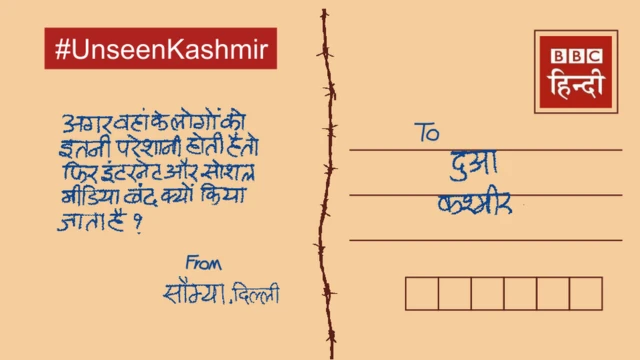 #UnseenKashmir
अगर वहां के लोगों को
इतनी परेशानी होती है तो
फिर इंटरनेट और सोशल
मीडिया बंद क्यों किया
जाता है ?
From
सौम्या, दिल्ली
BBC
हिन्दी
To
दुआ
कश्मीर